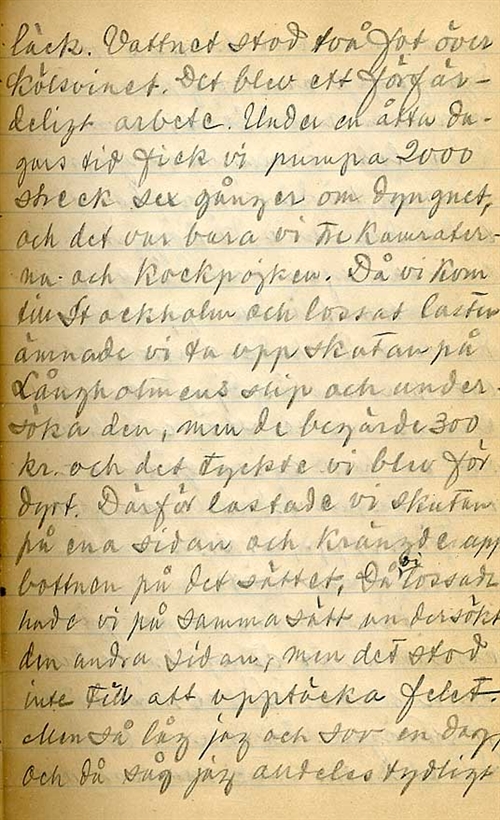 läck. Vattnet stod två fot över
kölsvinet. Det blev ett förfär-
deligt arbete. Under en åtta da-
gars tid fick vi pumpa 2000
streck sex gånger om dygnet,
och det var bara vi tre kamrater-
na och kockpojken. Då vi kom
till Stockholm och lossat lasten
ämnade vi ta upp skutan på
Långholmens slip och under-
söka den, men de begärde 300
kr. och det tyckte vi blev för
dyrt. Därför lastade vi skutan
på ena sidan och krängde upp
bottnen på det sättet. Då vi lossade
hade vi på samma sätt undersökt
den andra sidan, men det stod
inte till att upptäcka felet.
Men så låg jag och sov en dag,
och då såg jag alldeles tydligt